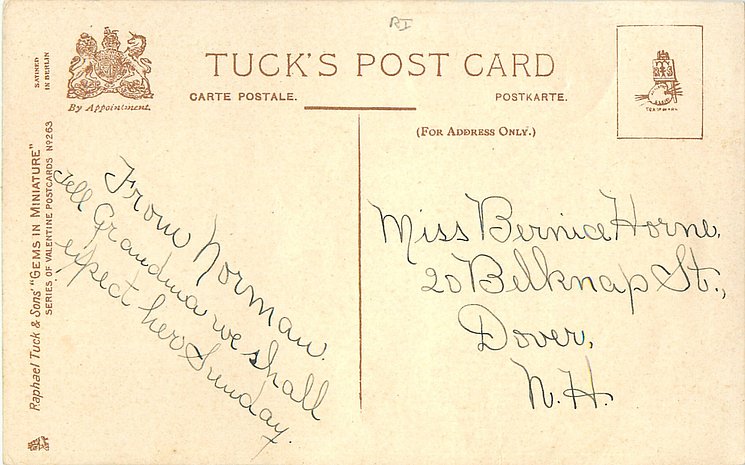 RI
TUCK'S POST CARD
CARTE POSTALE.
POSTKARTE.
(FOR ADDRESS ONLY.)
SATINED
IN BERLIN
By Appointment.
TRADE MARK
Raphael Tuck & Sons' "GEMS IN MINIATURE"
SERIES OF VALENTINE POSTCARDS Nº 263
From Norman.
Tell Grandma we shall
expect her Sunday.
Miss Bernice Horne,
20 Belknap St.,
Dover,
N.H.